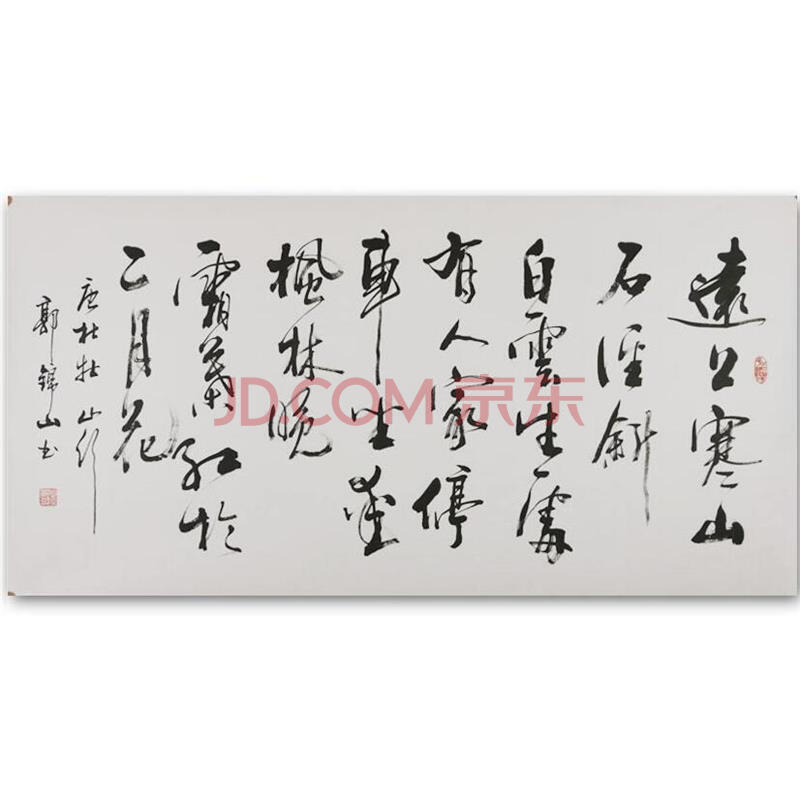 遠上寒山
石徑斜
白雲生處
有人家停
車坐愛
楓林晚
霜葉紅於
二月花
唐杜牧山行
郭錦山书
JD.COM 京东